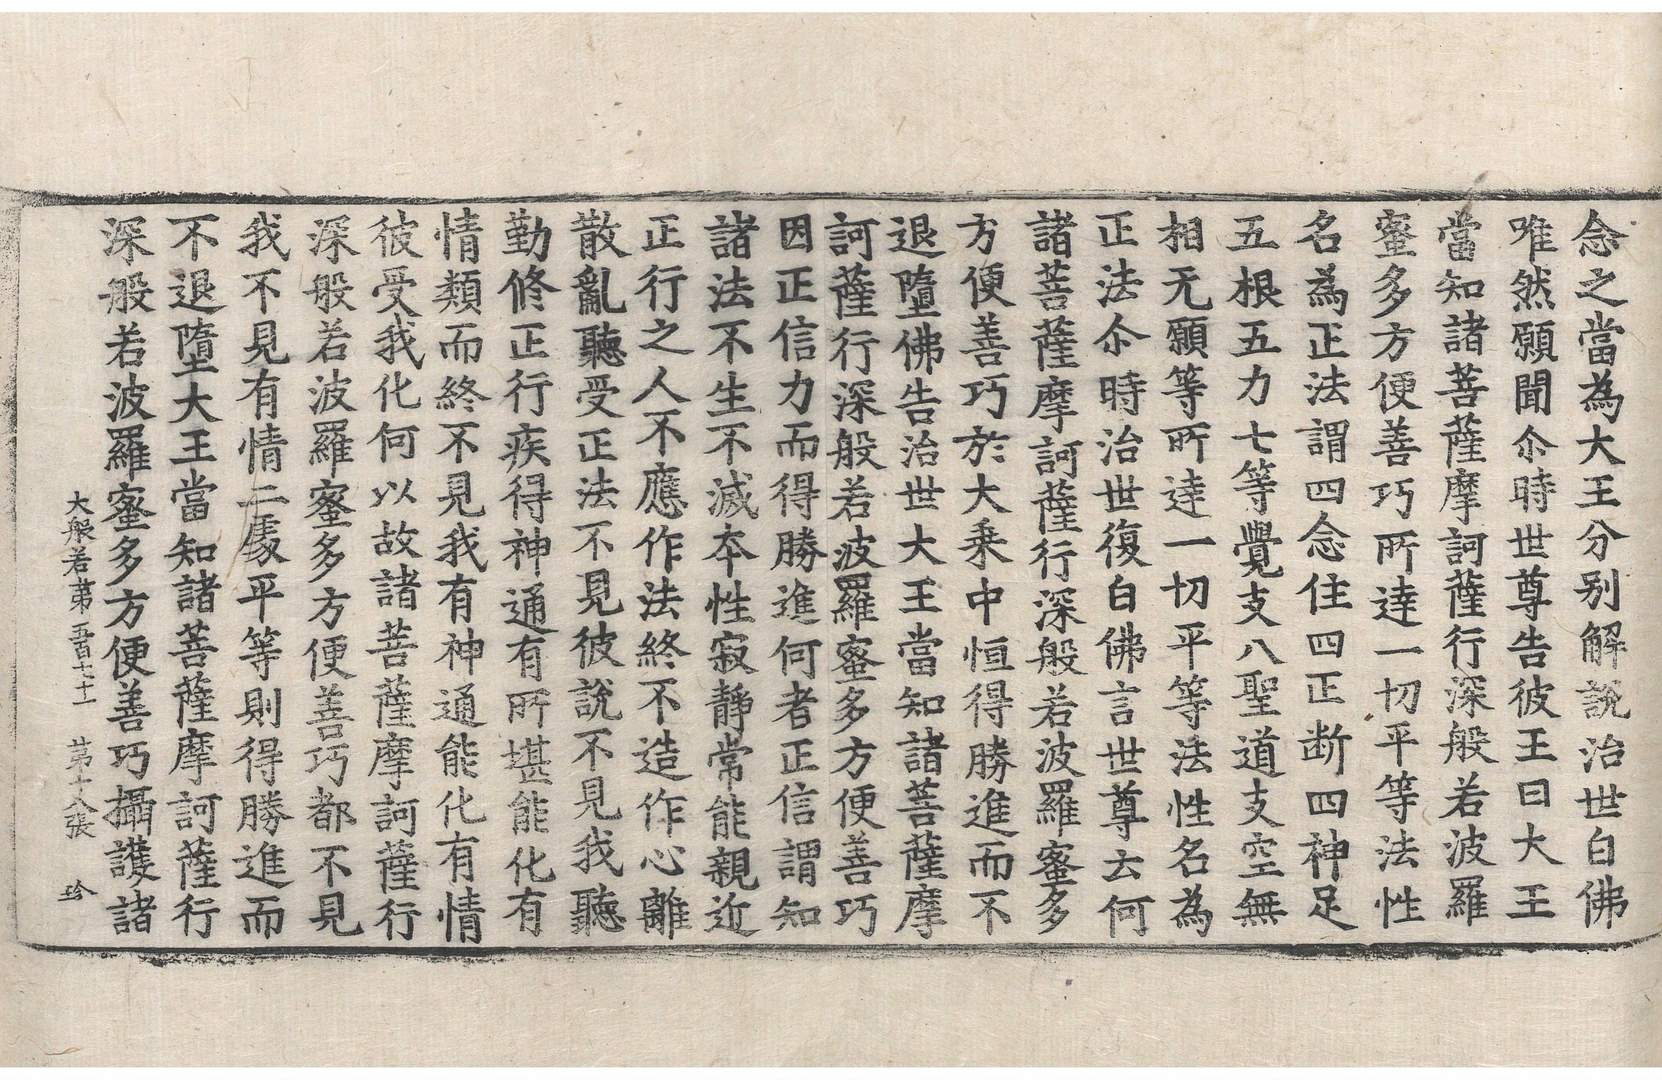 念之當為大王分別解說治世白佛
唯然願聞尒時世尊告彼王曰大王
當知諸菩薩摩訶薩行深般若波羅
蜜多方便善巧所達一切平等法性
名為正法謂四念住四正断四神足
五根五力七等覺支八聖道支空無
相无願等所達一切平等法性名為
正法尒時治世復白佛言世尊云何
諸菩薩摩訶薩行深般若波羅蜜多
方便善巧於大乗中恒得勝進而不
退墮佛告治世大王當知諸菩薩摩
訶薩行深般若波羅蜜多方便善巧
因正信力而得勝進何者正信謂知
諸法不生不滅夲性寂靜常能親近
正行之人不應作法終不造作心離
散亂聽受正法不見彼說不見我聽
勤修正行疾得神通有所堪能化有
情類而終不見我有神通能化有情
彼受我化何以故諸菩薩摩訶薩行
深般若波羅蜜多方便善巧都不見
我不見有情二處平等則得勝進而
不退墮大王當知諸菩薩摩訶薩行
深般若波羅蜜多方便善巧攝護諸
大般若第五百七十一 第十八張 珎